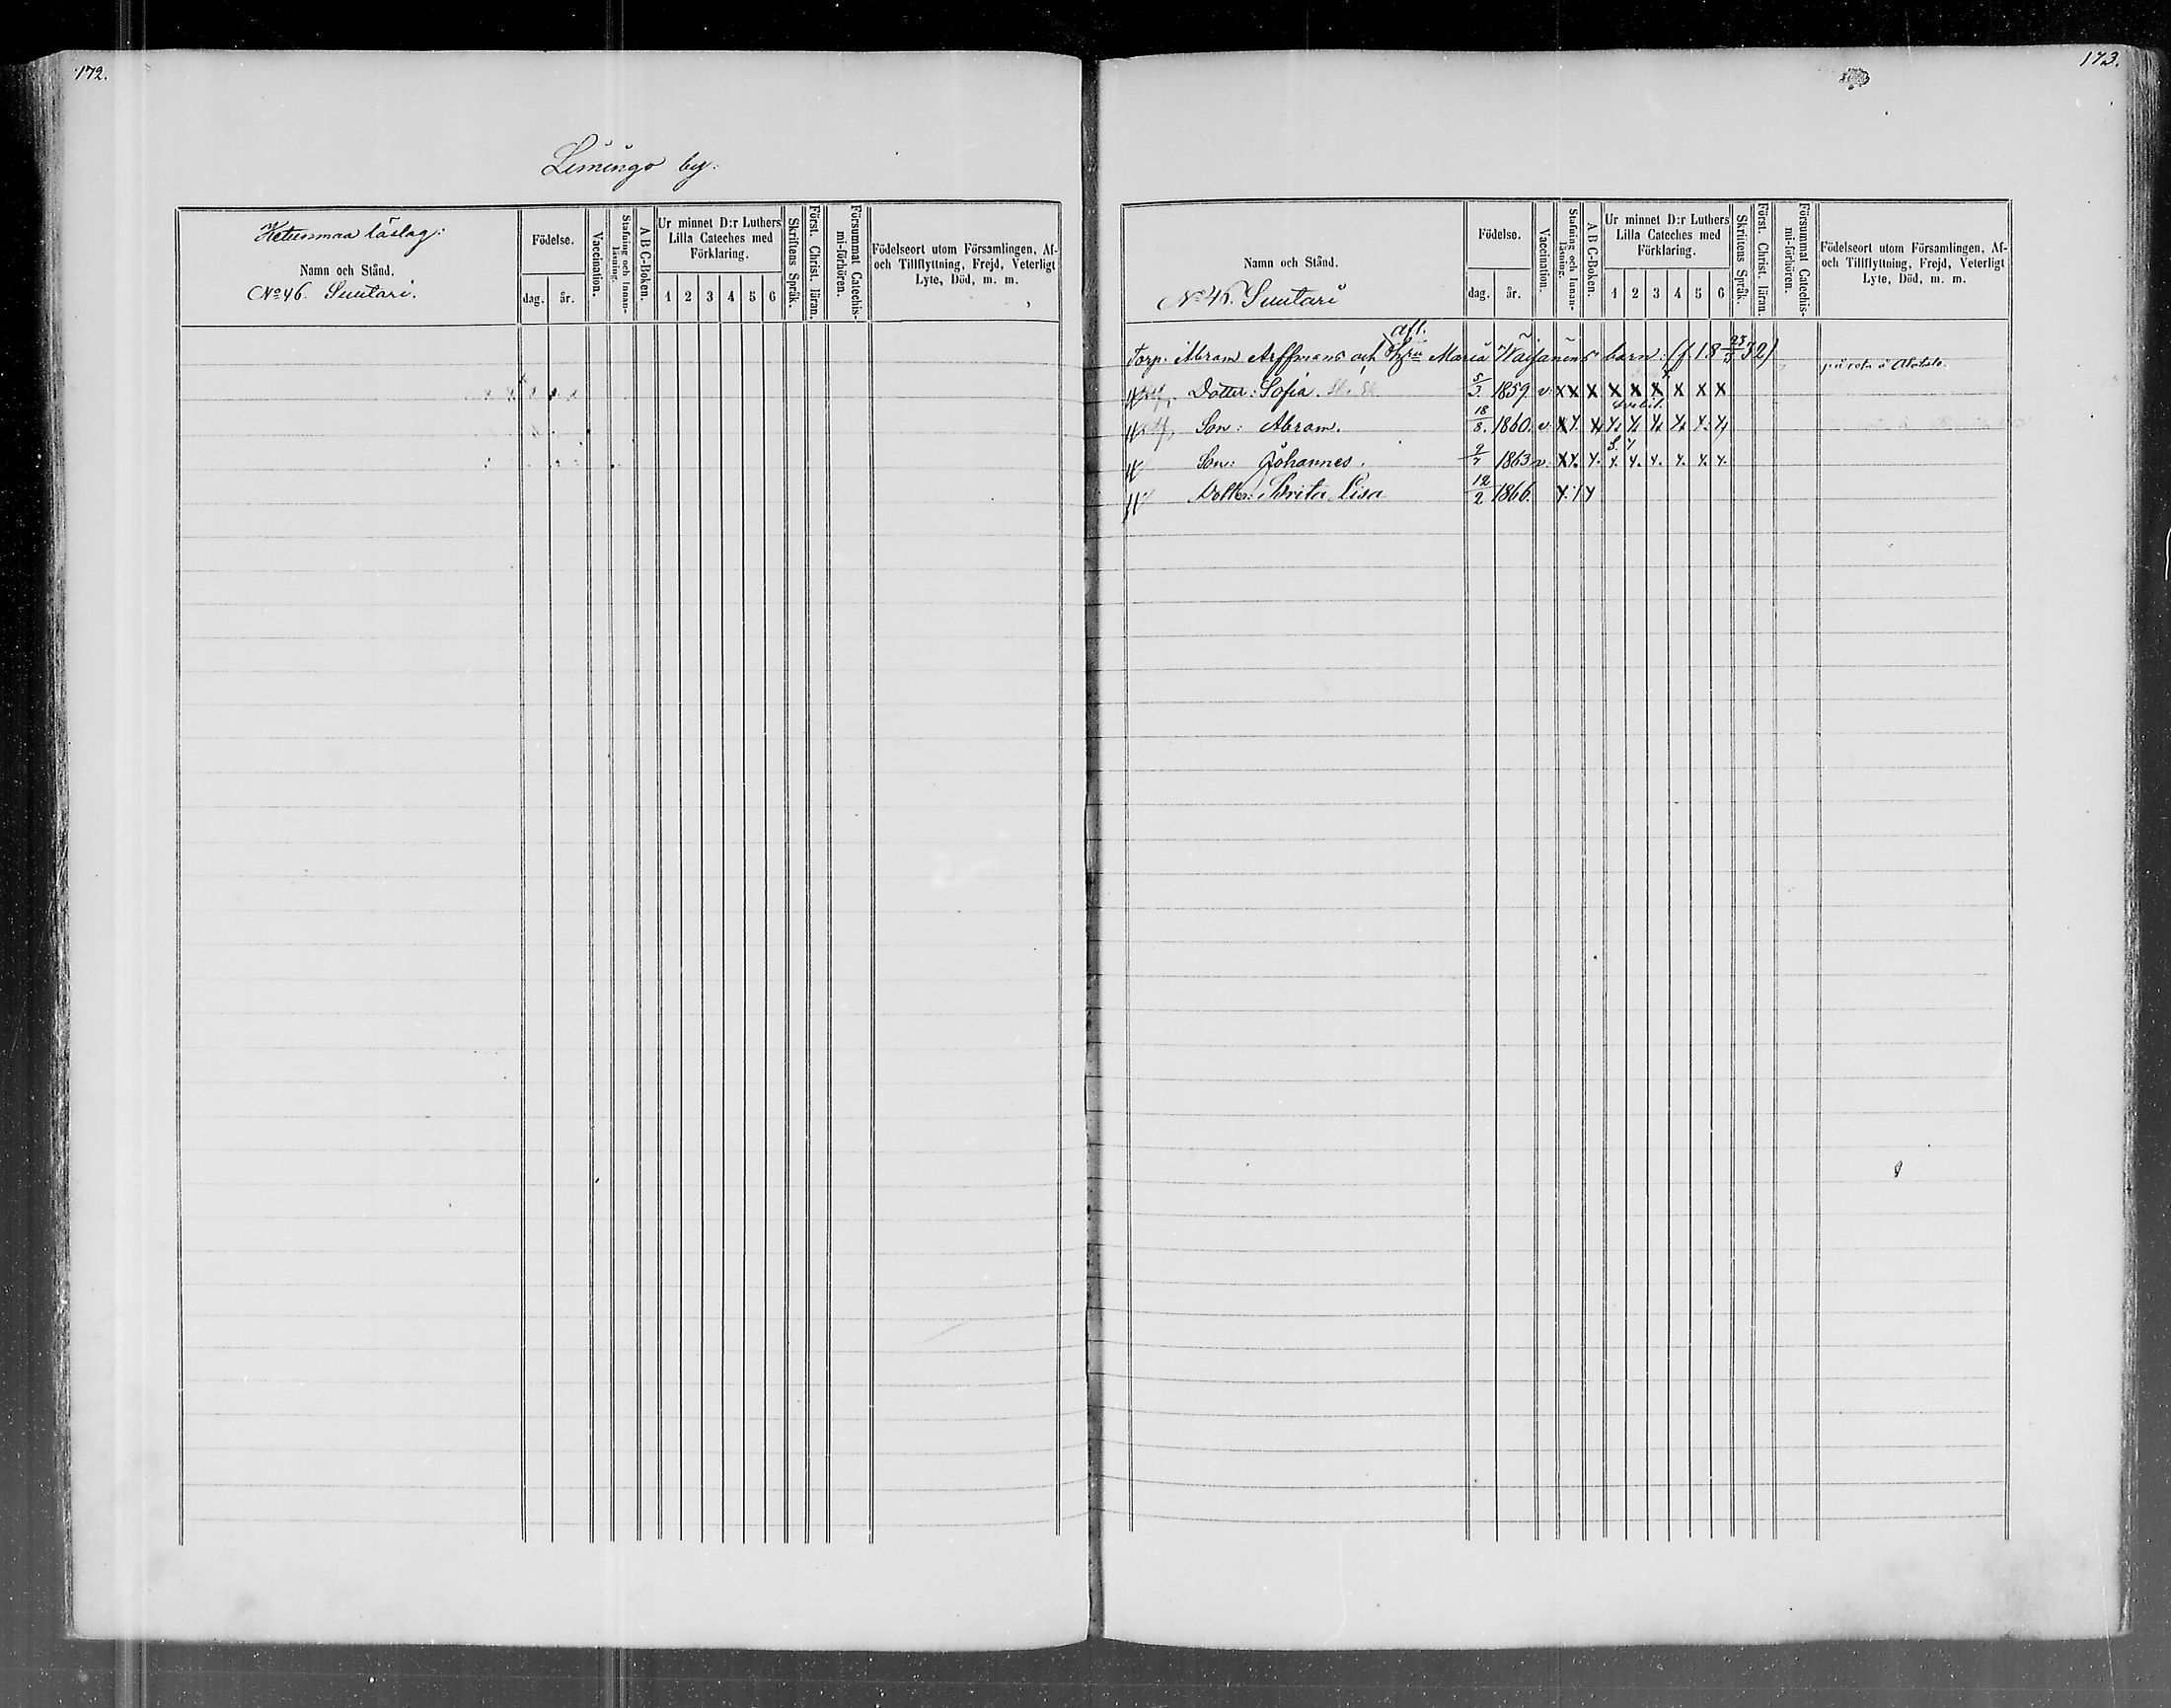 172.
Limingo by.
Ketunmaa läslag:
Namn och Stånd.
No 46. Suutari.
Födelse.
dag. år.
Vaccination.
Stafning och Innan-
läsning.
A B C-Boken.
Ur minnet D:r Luthers
Lilla Cateches med
Förklaring.
1 2 3 4 5 6
Skriftens Språk.
Först. Christ. läran.
Försummat Catechis-
mi-förhören.
Födelseort utom Församlingen, Af-
och Tillflyttning, Frejd, Veterligt
Lyte, Död, m. m.
173.
Namn och Stånd.
No 46. Suutari
Födelse.
dag. år.
Vaccination.
Stafning och Innan-
läsning.
A B C-Boken.
Ur minnet D:r Luthers
Lilla Cateches med
Förklaring.
1 2 3 4 5 6
Skriftens Språk.
Först. Christ. läran.
Försummat Catechis-
mi-förhören.
Födelseort utom Församlingen, Af-
och Tillflyttning, Frejd, Veterligt
Lyte, Död, m. m.
afl.
Torp. Abram Arffmans och Hzru Maria Väisänens barn (f. 18 32)
Dotter: Sofia. 5/3 1859. v. x x x x x x x x x
Son: Abram. 18/8. 1860. v.
Son: Johannes. 1863 v.
Dotter: Brita Lisa 12/2 1866.